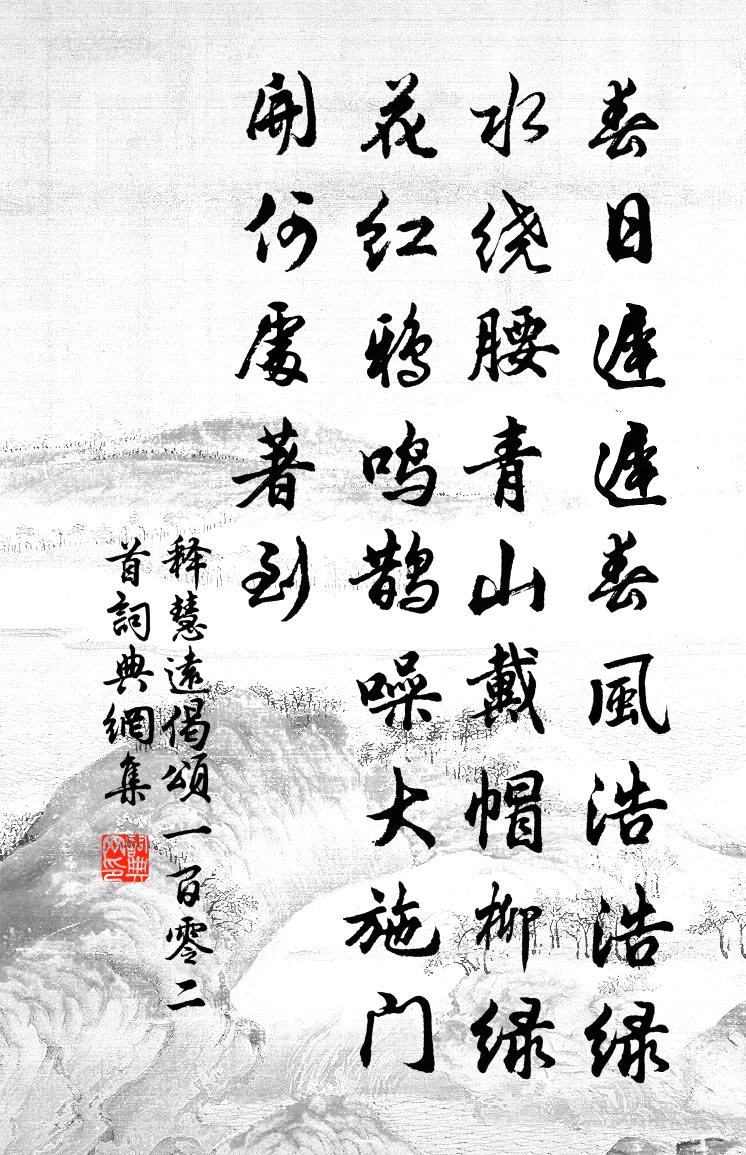 春日遲遲春風浩浩绿
水绕腰青山戴帽柳绿
花红鸦鸣鹊噪大施门
開何處著到
释慧遠偈頌一百零二
首詞典網集